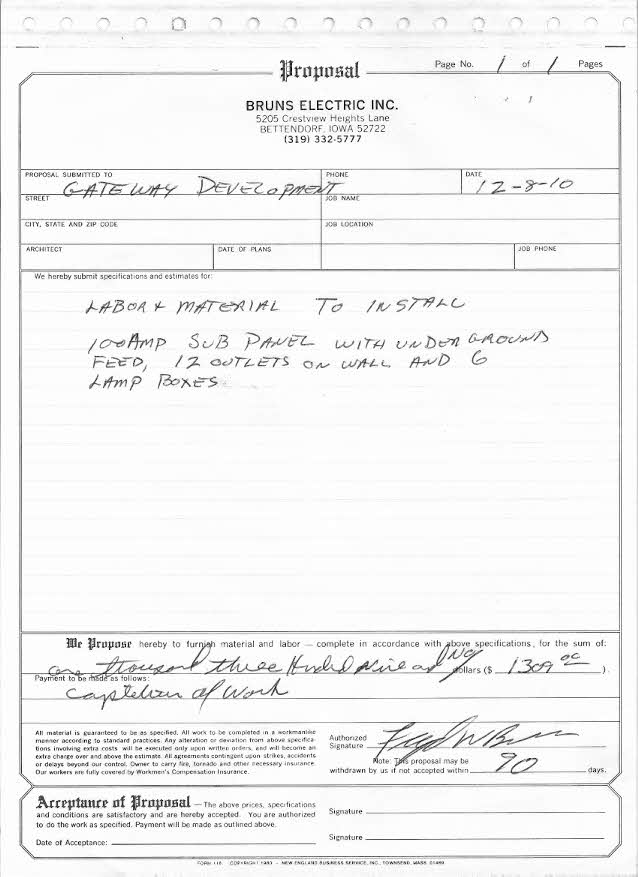 Proposal
Page No. 1 of 1 Pages
BRUNS ELECTRIC INC.
5205 Crestview Heights Lane
BETTENDORF, IOWA 52722
(319) 332-5777
PROPOSAL SUBMITTED TO
GATEWAY DEVELOPMENT
PHONE
DATE
12-8-10
STREET
JOB NAME
CITY, STATE AND ZIP CODE
JOB LOCATION
ARCHITECT
DATE OF PLANS
JOB PHONE
We hereby submit specifications and estimates for:
LABOR & MATERIAL TO INSTALL
100AMP SUB PANEL WITH UNDERGROUND
FEED, 12 OUTLETS ON WALL AND 6
LAMP BOXES
We Propose hereby to furnish material and labor — complete in accordance with above specifications, for the sum of:
one thousand three Hundred Nine and No/ dollars ($ 1309 00 ).
Payment to be made as follows:
of Work
All material is guaranteed to be as specified. All work to be completed in a workmanlike
manner according to standard practices. Any alteration or deviation from above specifica-
tions involving extra costs will be executed only upon written orders, and will become an
extra charge over and above the estimate. All agreements contingent upon strikes, accidents
or delays beyond our control. Owner to carry fire, tornado and other necessary insurance.
Our workers are fully covered by Workmen's Compensation Insurance.
Authorized
Signature
Note: This proposal may be
withdrawn by us if not accepted within 90 days.
Acceptance of Proposal — The above prices, specifications
and conditions are satisfactory and are hereby accepted. You are authorized
to do the work as specified. Payment will be made as outlined above.
Date of Acceptance:
Signature
Signature
FORM 118 COPYRIGHT 1960 - NEW ENGLAND BUSINESS SERVICE, INC., TOWNSEND, MASS. 01469